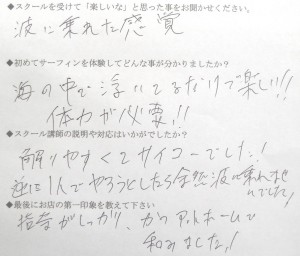 ◆スクールを受けて「楽しいな」と思った事をお聞かせください。
波に乗れた感覚
◆初めてサーフィンを体験してどんな事が分かりましたか?
海の中で浮いてるだけで楽しい!!
体力が必要!!
◆スクール講師の説明や対応はいかがでしたか?
解りやすくてサイコーでした!
逆に1人でやろうとしたら全然波に乗れませ
んでした!
◆最後にお店の第一印象を教えて下さい
指導がしっかり、かつアットホームで
和みました!